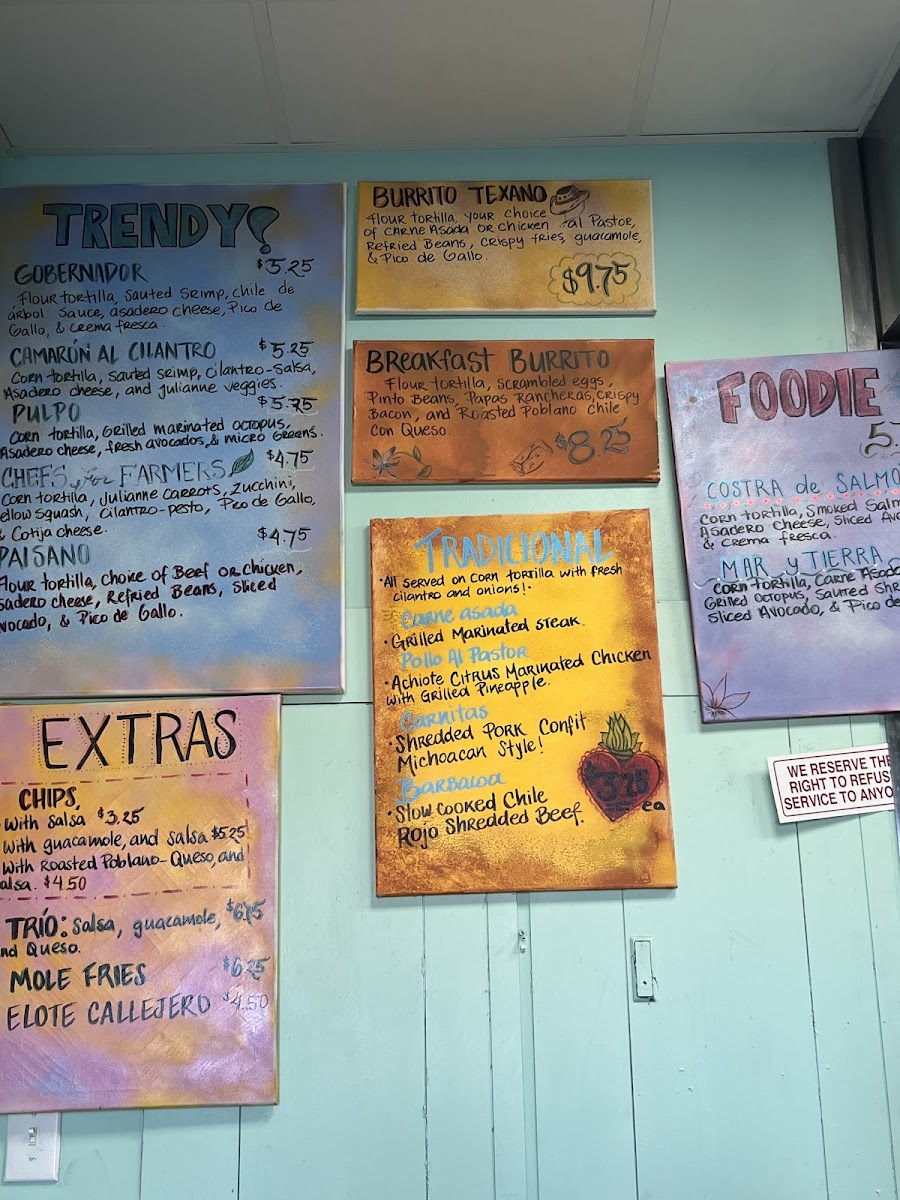 TRENDY?
GOBERNADOR $5.25
Flour tortilla, Sauted Srimp, chile de
árbol Sauce, asadero cheese, Pico de
Gallo, & crema fresca.
CAMARÓN AL CILANTRO $5.25
Corn tortilla, sauted srimp, cilantro-salsa,
Asadero cheese, and julianne veggies.
PULPO $5.75
Corn tortilla, Grilled marinated octopus,
Asadero cheese, fresh avocados, & micro Greens.
CHEFS for FARMERS $4.75
Corn tortilla, Julianne carrots, Zucchini,
ellow squash, cilantro-pesto, Pico de Gallo,
& Cotija cheese.
PAISANO $4.75
Flour tortilla, choice of Beef or chicken,
sadero cheese, Refried Beans, Sliced
vocado, & Pico de Gallo.
BURRITO TEXANO
Flour tortilla, your choice
of Carne Asada or chicken al Pastor,
Refried Beans, crispy fries, guacamole,
& Pico de Gallo.
$9.75
BREAKFAST BURRITO
Flour tortilla, scrambled eggs,
Pinto Beans, Papas Rancheras, crispy
Bacon, and Roasted Poblano chile
con Queso.
$8.25
TRADICIONAL
·All served on corn tortilla with fresh
cilantro and onions!·
Carne asada
·Grilled Marinated steak.
Pollo Al Pastor
·Achiote Citrus Marinated Chicken
with Grilled Pineapple.
Carnitas
·Shredded Pork Confit
Michoacan Style!
Barbacoa
·Slow cooked Chile
Rojo Shredded Beef.
$3.25
ea
FOODIE
5.
COSTRA de SALMO
Corn tortilla, Smoked Salm
Asadero cheese, Sliced Avo
& crema fresca.
MAR y TIERRA
Corn tortilla, Carne Asada
Grilled Octopus, Sauted Shr
Sliced Avocado, & Pico de
WE RESERVE THE
RIGHT TO REFUS
SERVICE TO ANYO
EXTRAS
CHIPS,
with salsa $3.25
with guacamole, and salsa $5.25
with Roasted Poblano-Queso, and
alsa. $4.50
TRÍO: Salsa, guacamole, $6.75
nd Queso.
MOLE FRIES $6.25
ELOTE CALLEJERO $4.50